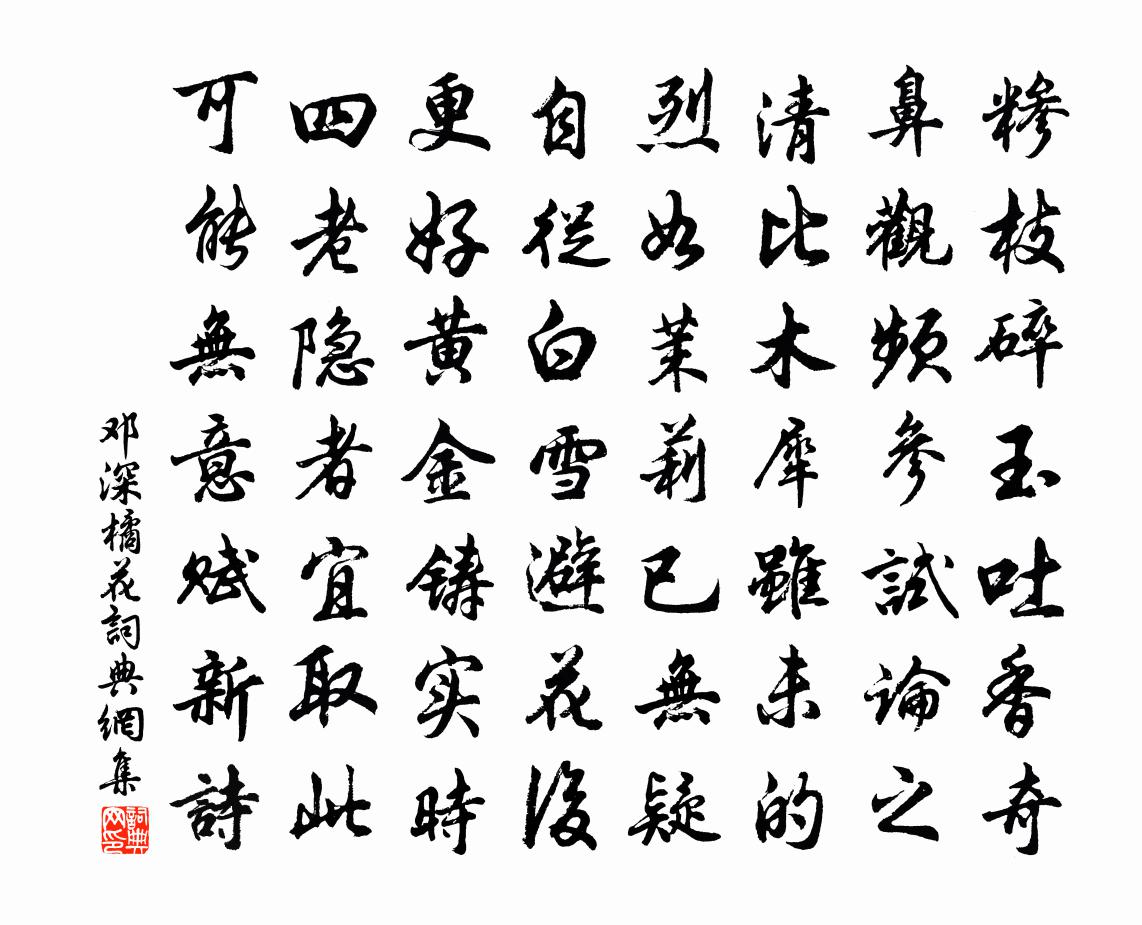 糝枝碎玉吐香奇
鼻觀頻參試論之
清比木犀雖未的
烈如茉莉已無疑
自從白雪避花後
更好黄金鑄实時
四老隐者宜取此
可能無意賦新詩
邓深橘花詞典網集
詞典网印